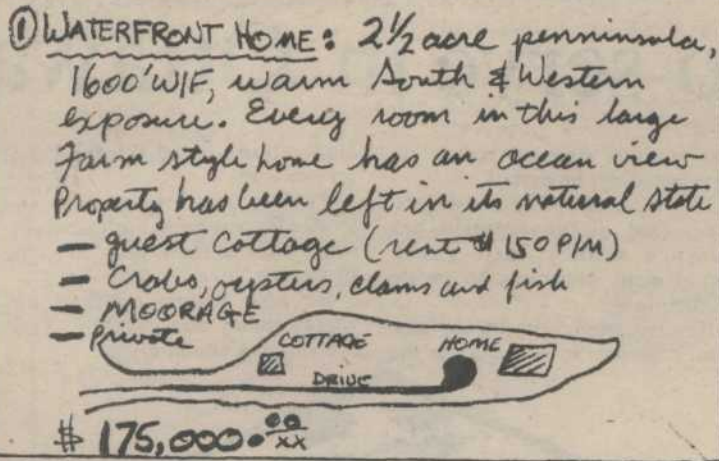 ① WATERFRONT HOME: 2½ acre penninsula,
1600' W/F, warm South & Western
exposure. Every room in this large
Farm style home has an ocean view
Property has been left in its natural state
— guest cottage (rent $150 P/M)
— Crabs, oysters, clams and fish
— MOORAGE
— Private
COTTAGE HOME
DRIVE
$ 175,000.00/xx